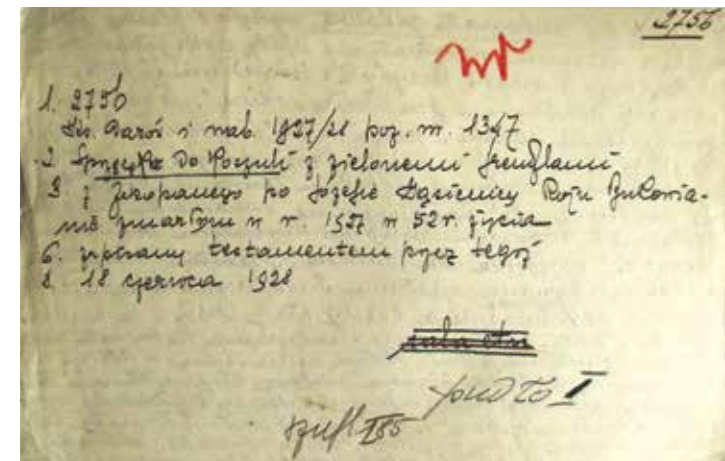 2756
1. 2750
Ks. Darów i nab. 1927/28 poz. nr. 1347
2. Sprzążka Do Koszuli z zielonemi frenzlami
3. z Zakopanego po Józefie Gąsienicy Roju
zmarłym w r. 1927 w 52 r. życia
6. zapisany testamentem przez tegoż
8. 18 czerwca 1928
sala etn
pudło I
szufl. 185